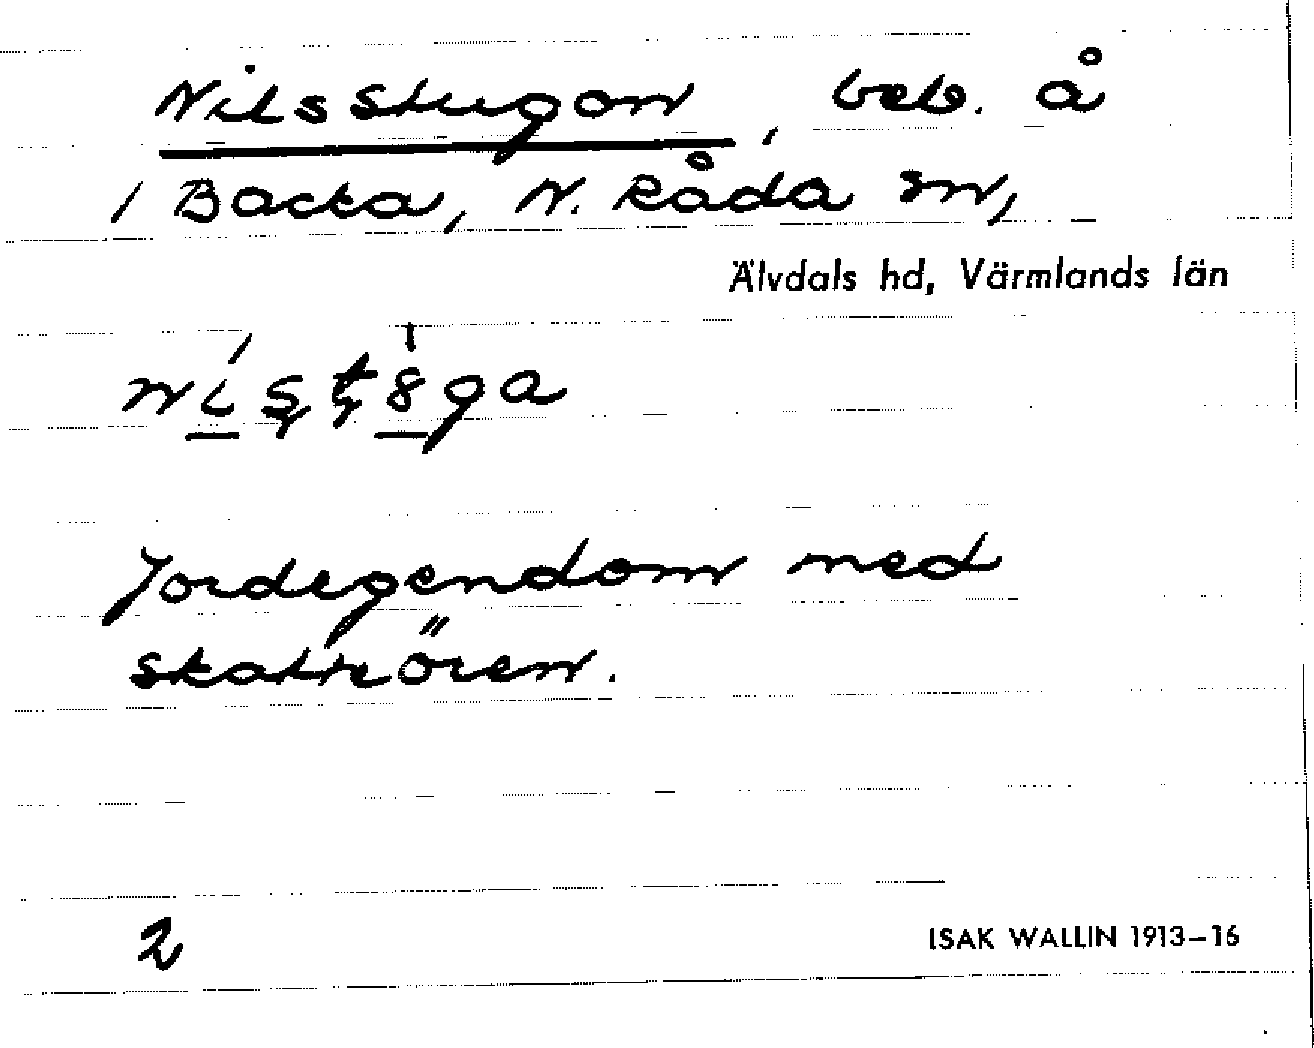 Nilsstugon, beb. å
1 Backa, N. Råda sn,
Älvdals hd, Värmlands län
Jordegendom med
skattören.
2
ISAK WALLIN 1913–16